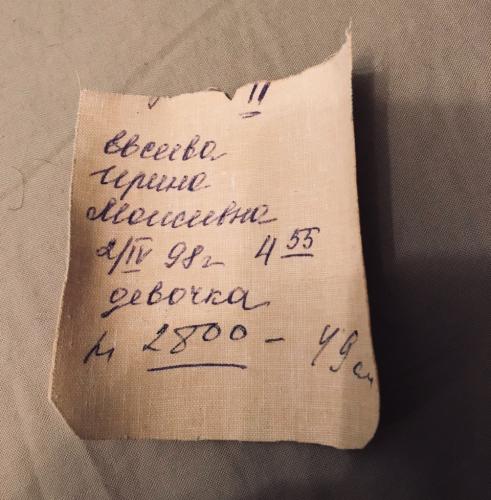 II
Евсеева
Ирина
Моисеевна
2/IV 98г 4 55
девочка
м 2800 - 49см